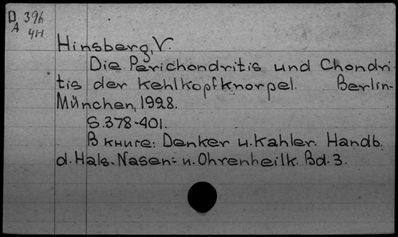 D 396
A 4H
Hinsberg, V.
Die Perichondritis und Chondri-
tis der Kehlkopfknorpel. Berlin-
München, 1928.
S. 378-401.
В книге: Denker u. Kahler. Handb.
d. Hals- Nasen- u. Ohrenheilk. Bd. 3.